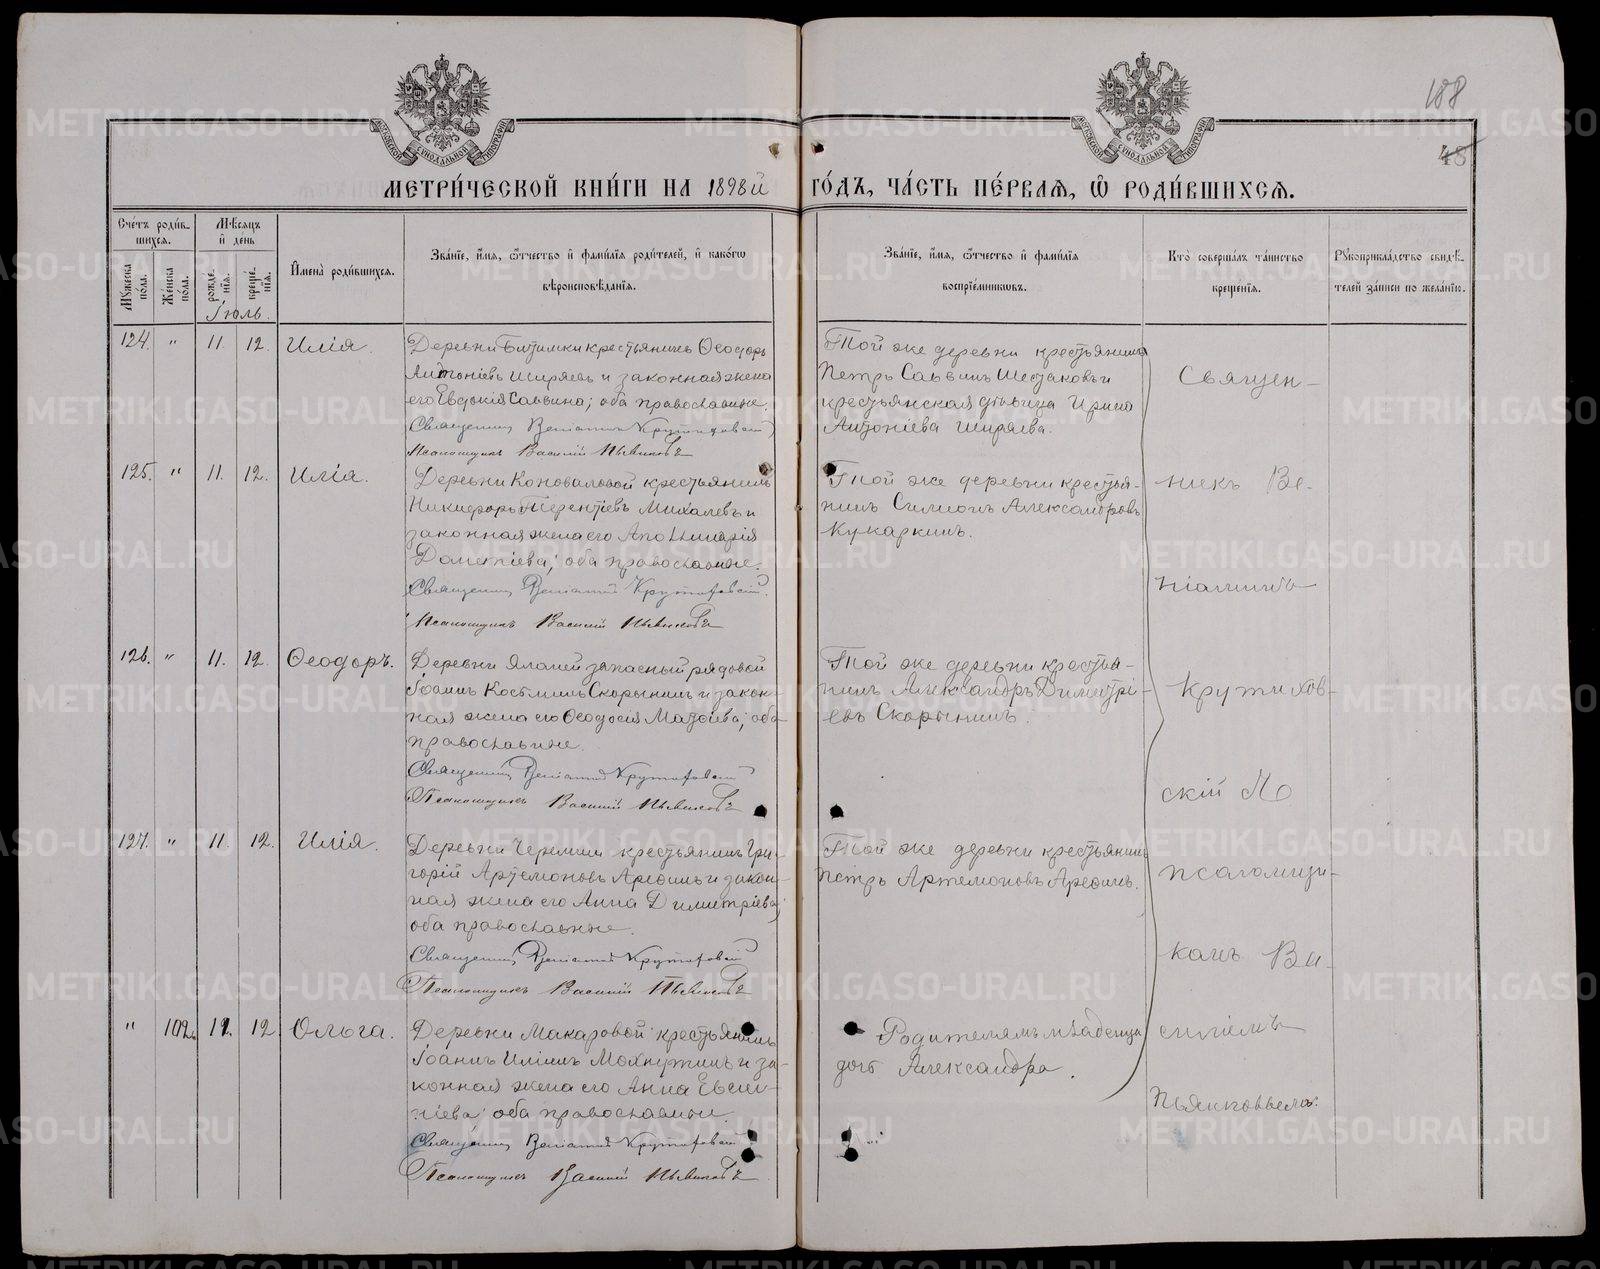 188
48
МОСКОВСКОЙ СѴНОДАЛЬНОЙ ТИПОГРАФІИ
МОСКОВСКОЙ СѴНОДАЛЬНОЙ ТИПОГРАФІИ
МЕТРИ́ЧЕСКОЙ КНИ́ГИ НА 1898й ГО́ДЪ, ЧА́СТЬ ПЕ́РВАЯ, Ѽ РОДИ́ВШИХСЯ.
Сче́тъ роди́в-
шихся.
Му́жеска по́ла.
Же́нска по́ла.
Мѣ́сяцъ
и҆ де́нь
рожде́нїя.
креще́нїя.
Іюль.
И҆мена̀ роди́вшихся.
Зва́нїе, и҆́мя, ѻ҆́тчество и҆ фами́лїя роди́телей, и҆ како́гѡ
вѣроисповѣ́данїя.
Зва́нїе, и҆́мя, ѻ҆́тчество и҆ фами́лїя
воспрїе́мникѡвъ.
Кто̀ соверша́лъ та́инство
креще́нїя.
Рꙋкоприкла́дство свидѣ́-
телей за́писи по жела́нїю.
124. " 11. 12. Илія.
Деревни Битимки крестьянинъ Ѳеодоръ
Антоніевъ Ширяевъ и законная жена
его Евдокія Саввина; оба православные.
Священникъ Веніаминъ Крутиховскій
Псаломщикъ Василій Пьянковъ
Той же деревни крестьянинъ
Петръ Саввинъ Шестаковъ и
крестьянская дѣвица Ирина
Антоніева Ширяева.
125. " 11. 12. Илія.
Деревни Коноваловой крестьянинъ
Никифоръ Терентіевъ Михалевъ и
законная жена его Аполинарія
Дометіева; оба православные.
Священникъ Веніаминъ Крутиховскій.
Псаломщикъ Василій Пьянковъ
Той же деревни крестья-
нинъ Симеонъ Александровъ
Кукаркинъ.
126. " 11. 12. Ѳеодоръ.
Деревни запасный рядовой
Іоаннъ Косьминъ Скорынинъ и закон-
ная жена его Ѳеодосія Матѳіева; оба
православные.
Священникъ Веніаминъ Крутиховскій
Псаломщикъ Василій Пьянковъ
Той же деревни крестья-
нинъ Александръ Димитрі-
евъ Скорынинъ.
127. " 11. 12. Илія.
Деревни Черемши крестьянинъ Гри-
горій Артемоновъ Арефинъ и закон-
ная жена его Анна Димитріева;
оба православные.
Священникъ Веніаминъ Крутиховскій
Псаломщикъ Василій Пьянковъ
Той же деревни крестьянинъ
Петръ Артемоновъ Арефинъ.
" 102. 11. 12. Ольга.
Деревни Макаровой крестьянинъ
Іоаннъ Иліинъ Махнутинъ и за-
конная жена его Анна Евсиг-
ніева; оба православные
Священникъ Веніаминъ Крутиховскій
Псаломщикъ Василій Пьянковъ
Родителямъ младенца
дочь Александра.
Священ-
никъ Ве-
ніаминъ
Крутихов-
скій
псаломщи-
комъ Ва-
силіемъ
Пьянковымъ.
METRIKI.GASO-URAL.RU